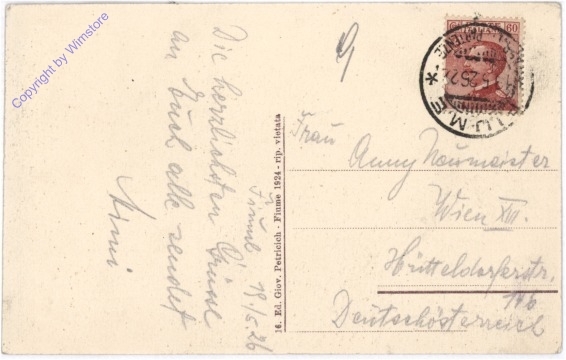 Copyright by Wimstore
Fiume 19./5.26
Die herzlichsten Grüsse
an Euch alle sendet
Mimi
16. Ed. Giov. Petricich - Fiume 1924 - rip. vietata
60
FIUME
Frau
Anny Neumeister
Wien XII.
Hütteldorferstr.
146
Deutschösterreich